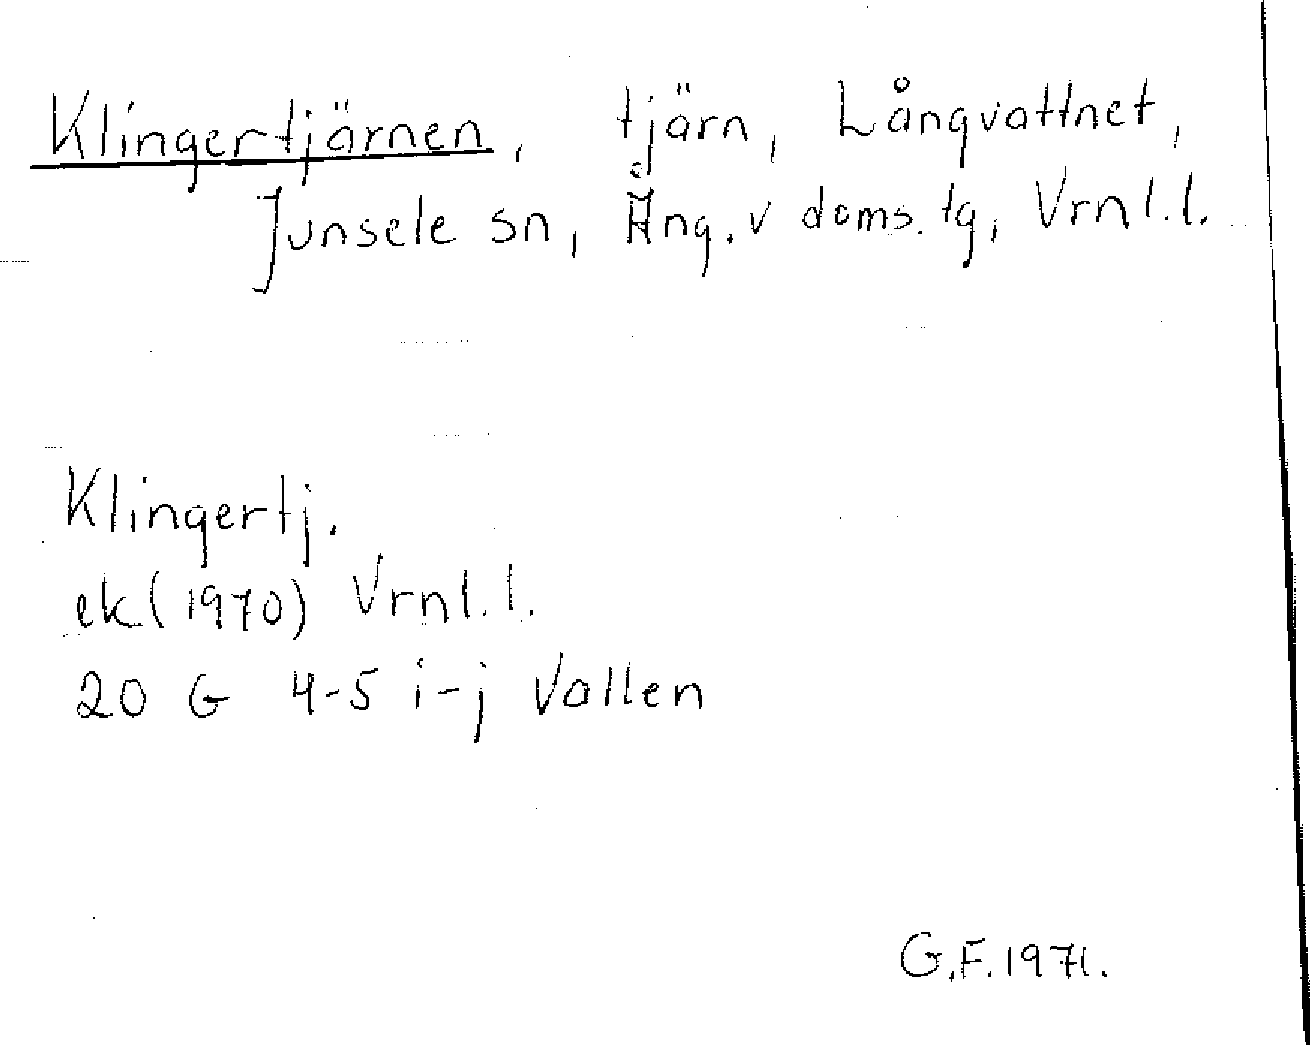 Klingertjärnen, tjärn, Långvattnet,
Junsele sn, Ång. v doms. tg, Vrnl. l.
Klingertj.
ek (1970) Vrnl. l.
20 G 4-5 i-j Vallen
G.F. 1971.